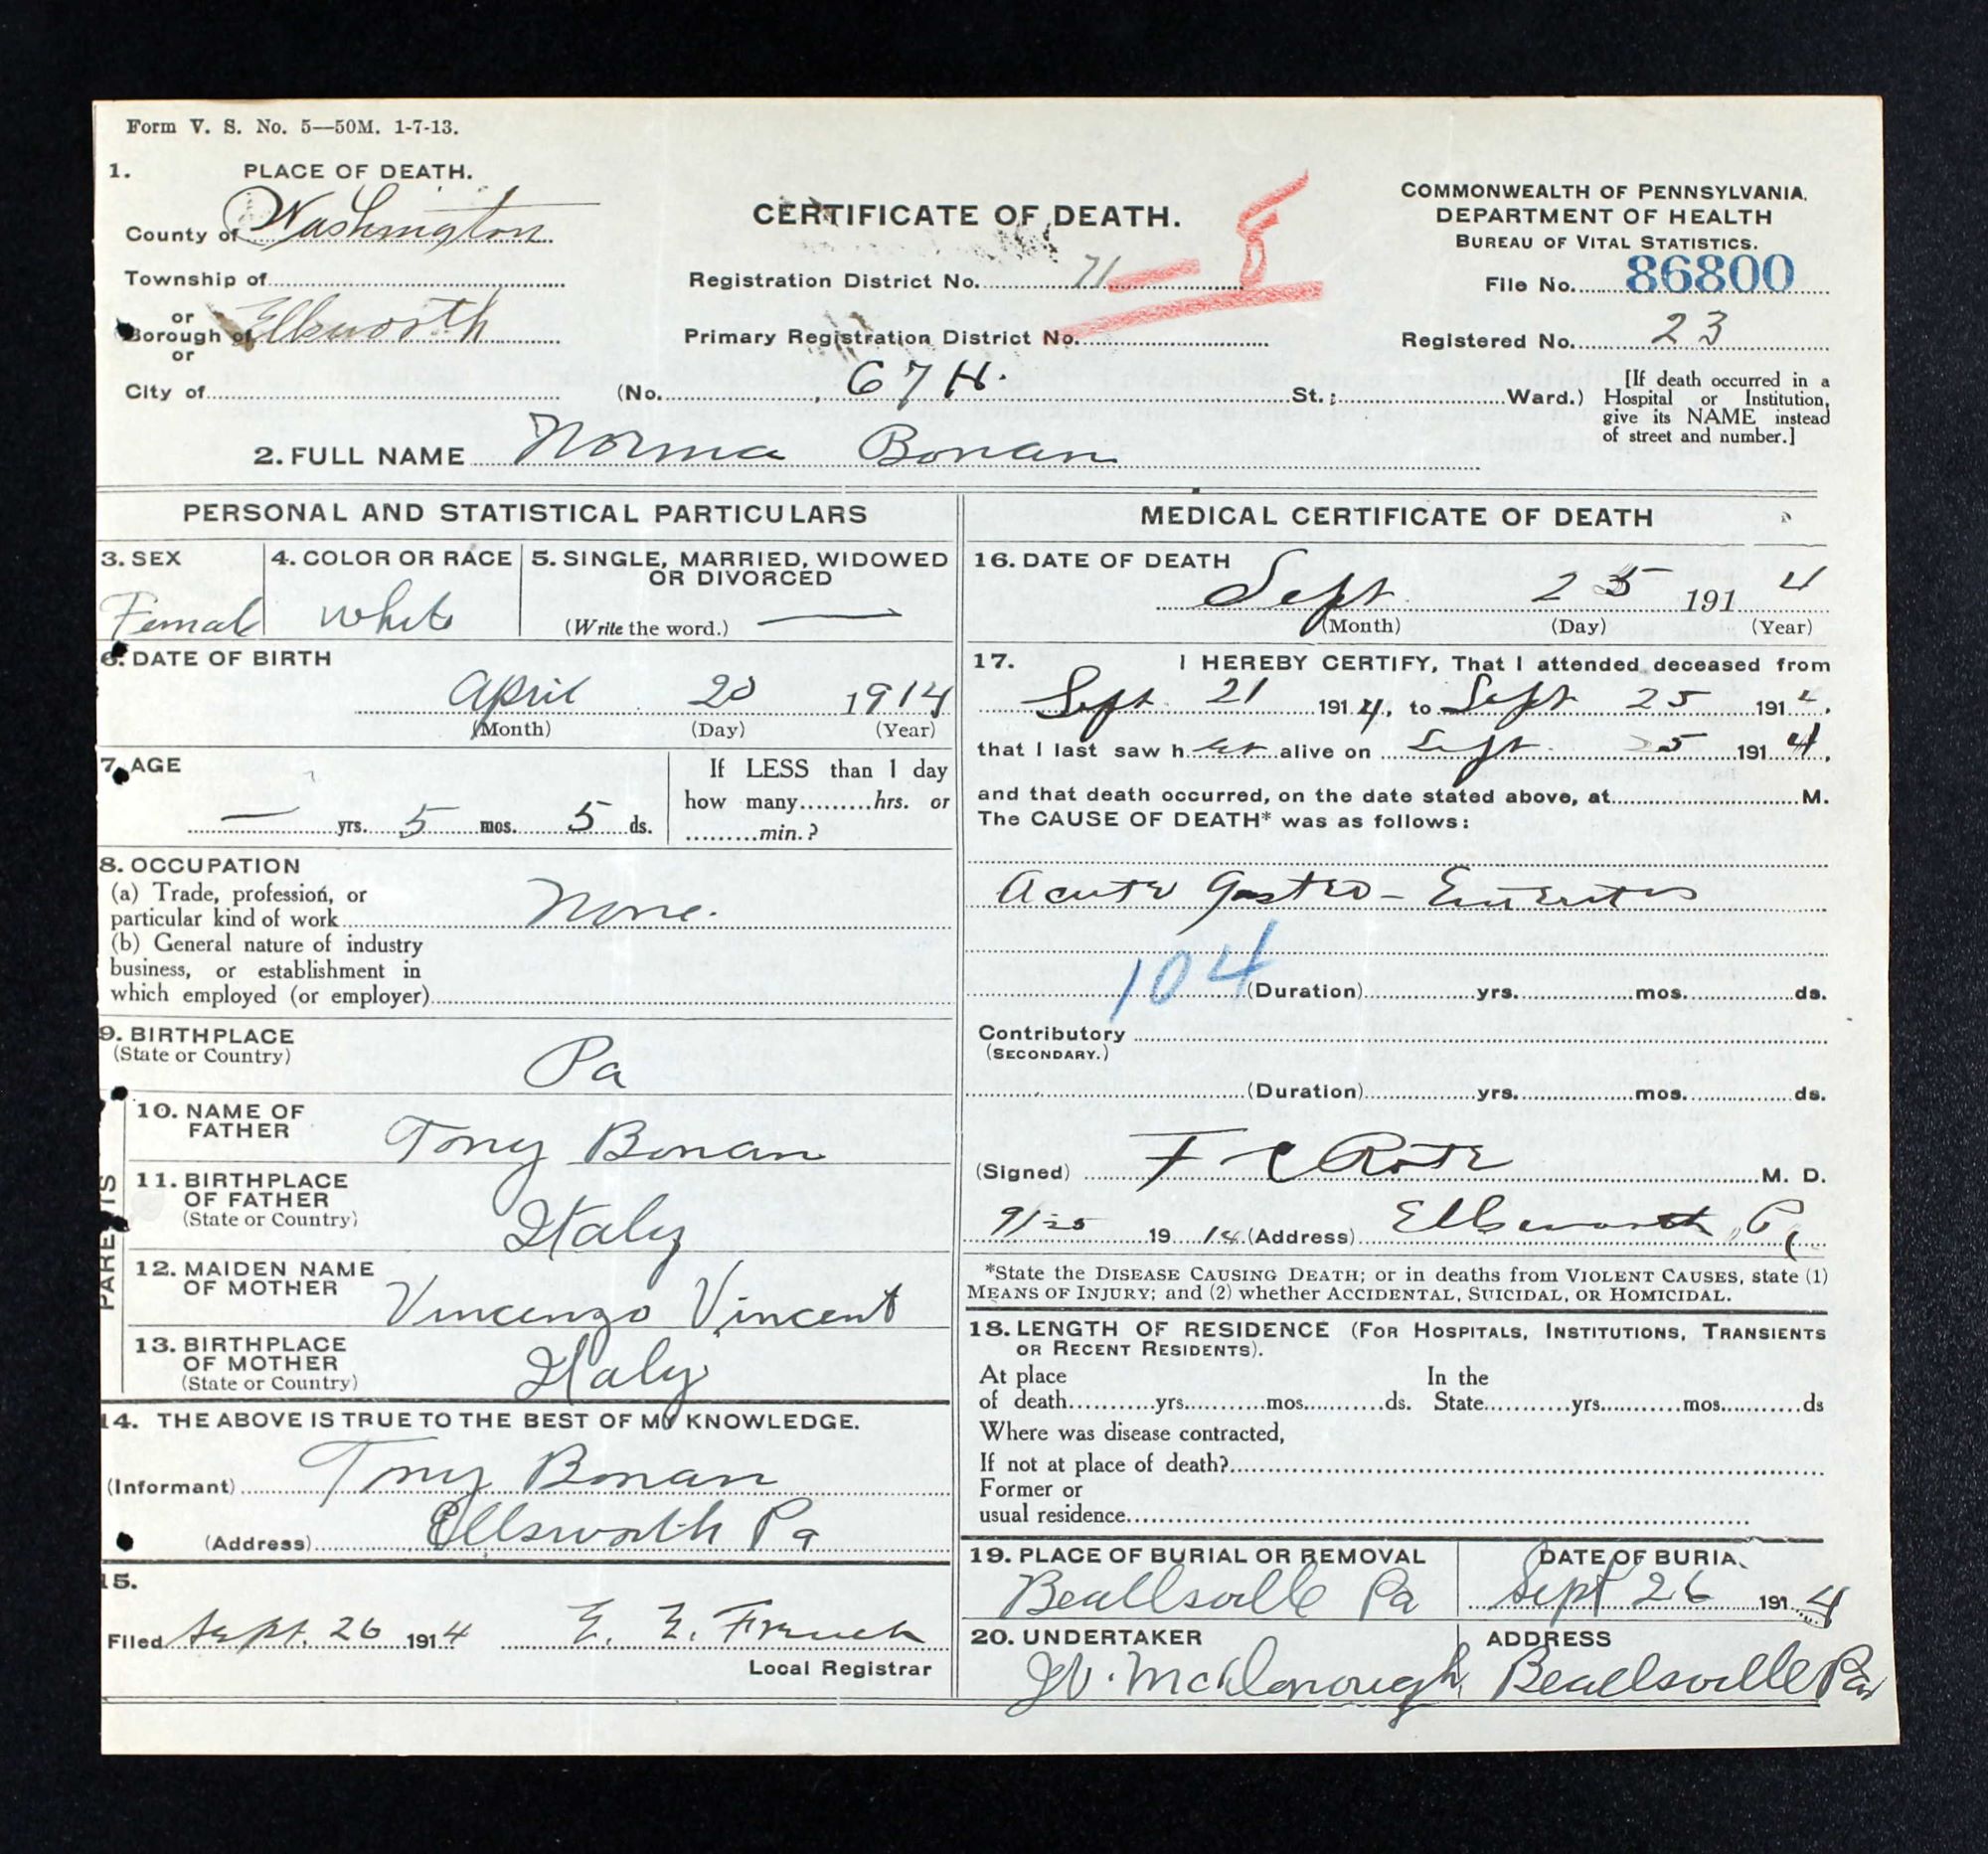 Form V. S. No. 5—50M. 1-7-13.
1. PLACE OF DEATH.
County of Washington
Township of
or
Borough of Ellsworth
or
City of
CERTIFICATE OF DEATH.
Registration District No. 71 — 8
Primary Registration District No.
(No. 67 H. St.; Ward.)
COMMONWEALTH OF PENNSYLVANIA.
DEPARTMENT OF HEALTH
BUREAU OF VITAL STATISTICS.
File No. 86800
Registered No. 23
[If death occurred in a
Hospital or Institution,
give its NAME instead
of street and number.]
2. FULL NAME Norma Bonan
PERSONAL AND STATISTICAL PARTICULARS
3. SEX
Female
4. COLOR OR RACE
White
5. SINGLE, MARRIED, WIDOWED
OR DIVORCED
(Write the word.) —
6. DATE OF BIRTH
April 20 1914
(Month) (Day) (Year)
7. AGE
— yrs. 5 mos. 5 ds.
If LESS than 1 day
how many.........hrs. or
.........min.?
8. OCCUPATION
(a) Trade, profession, or
particular kind of work None.
(b) General nature of industry
business, or establishment in
which employed (or employer)
9. BIRTHPLACE
(State or Country)
Pa
PARENTS
10. NAME OF
FATHER
Tony Bonan
11. BIRTHPLACE
OF FATHER
(State or Country)
Italy
12. MAIDEN NAME
OF MOTHER
Vincenzo Vincent
13. BIRTHPLACE
OF MOTHER
(State or Country)
Italy
14. THE ABOVE IS TRUE TO THE BEST OF MY KNOWLEDGE.
(Informant) Tony Bonan
(Address) Ellsworth Pa
15.
Filed Sept. 26 1914 E. E. French
Local Registrar
MEDICAL CERTIFICATE OF DEATH
16. DATE OF DEATH
Sept 25 1914
(Month) (Day) (Year)
17. I HEREBY CERTIFY, That I attended deceased from
Sept 21 1914, to Sept 25 1914,
that I last saw her alive on Sept. 25 1914,
and that death occurred, on the date stated above, at M.
The CAUSE OF DEATH* was as follows:
Acute Gastro-Enteritis
104 (Duration) yrs. mos. ds.
Contributory
(SECONDARY.)
(Duration) yrs. mos. ds.
(Signed) F C M. D.
9/25 1914 (Address) Ellsworth, Pa
*State the DISEASE CAUSING DEATH; or in deaths from VIOLENT CAUSES, state (1)
MEANS OF INJURY; and (2) whether ACCIDENTAL, SUICIDAL, OR HOMICIDAL.
18. LENGTH OF RESIDENCE (FOR HOSPITALS, INSTITUTIONS, TRANSIENTS
OR RECENT RESIDENTS).
At place In the
of death yrs. mos. ds. State yrs. mos. ds
Where was disease contracted,
If not at place of death?
Former or
usual residence
19. PLACE OF BURIAL OR REMOVAL
Beallsville Pa
DATE OF BURIAL
Sept 26 1914
20. UNDERTAKER
McDonough
ADDRESS
Beallsville Pa